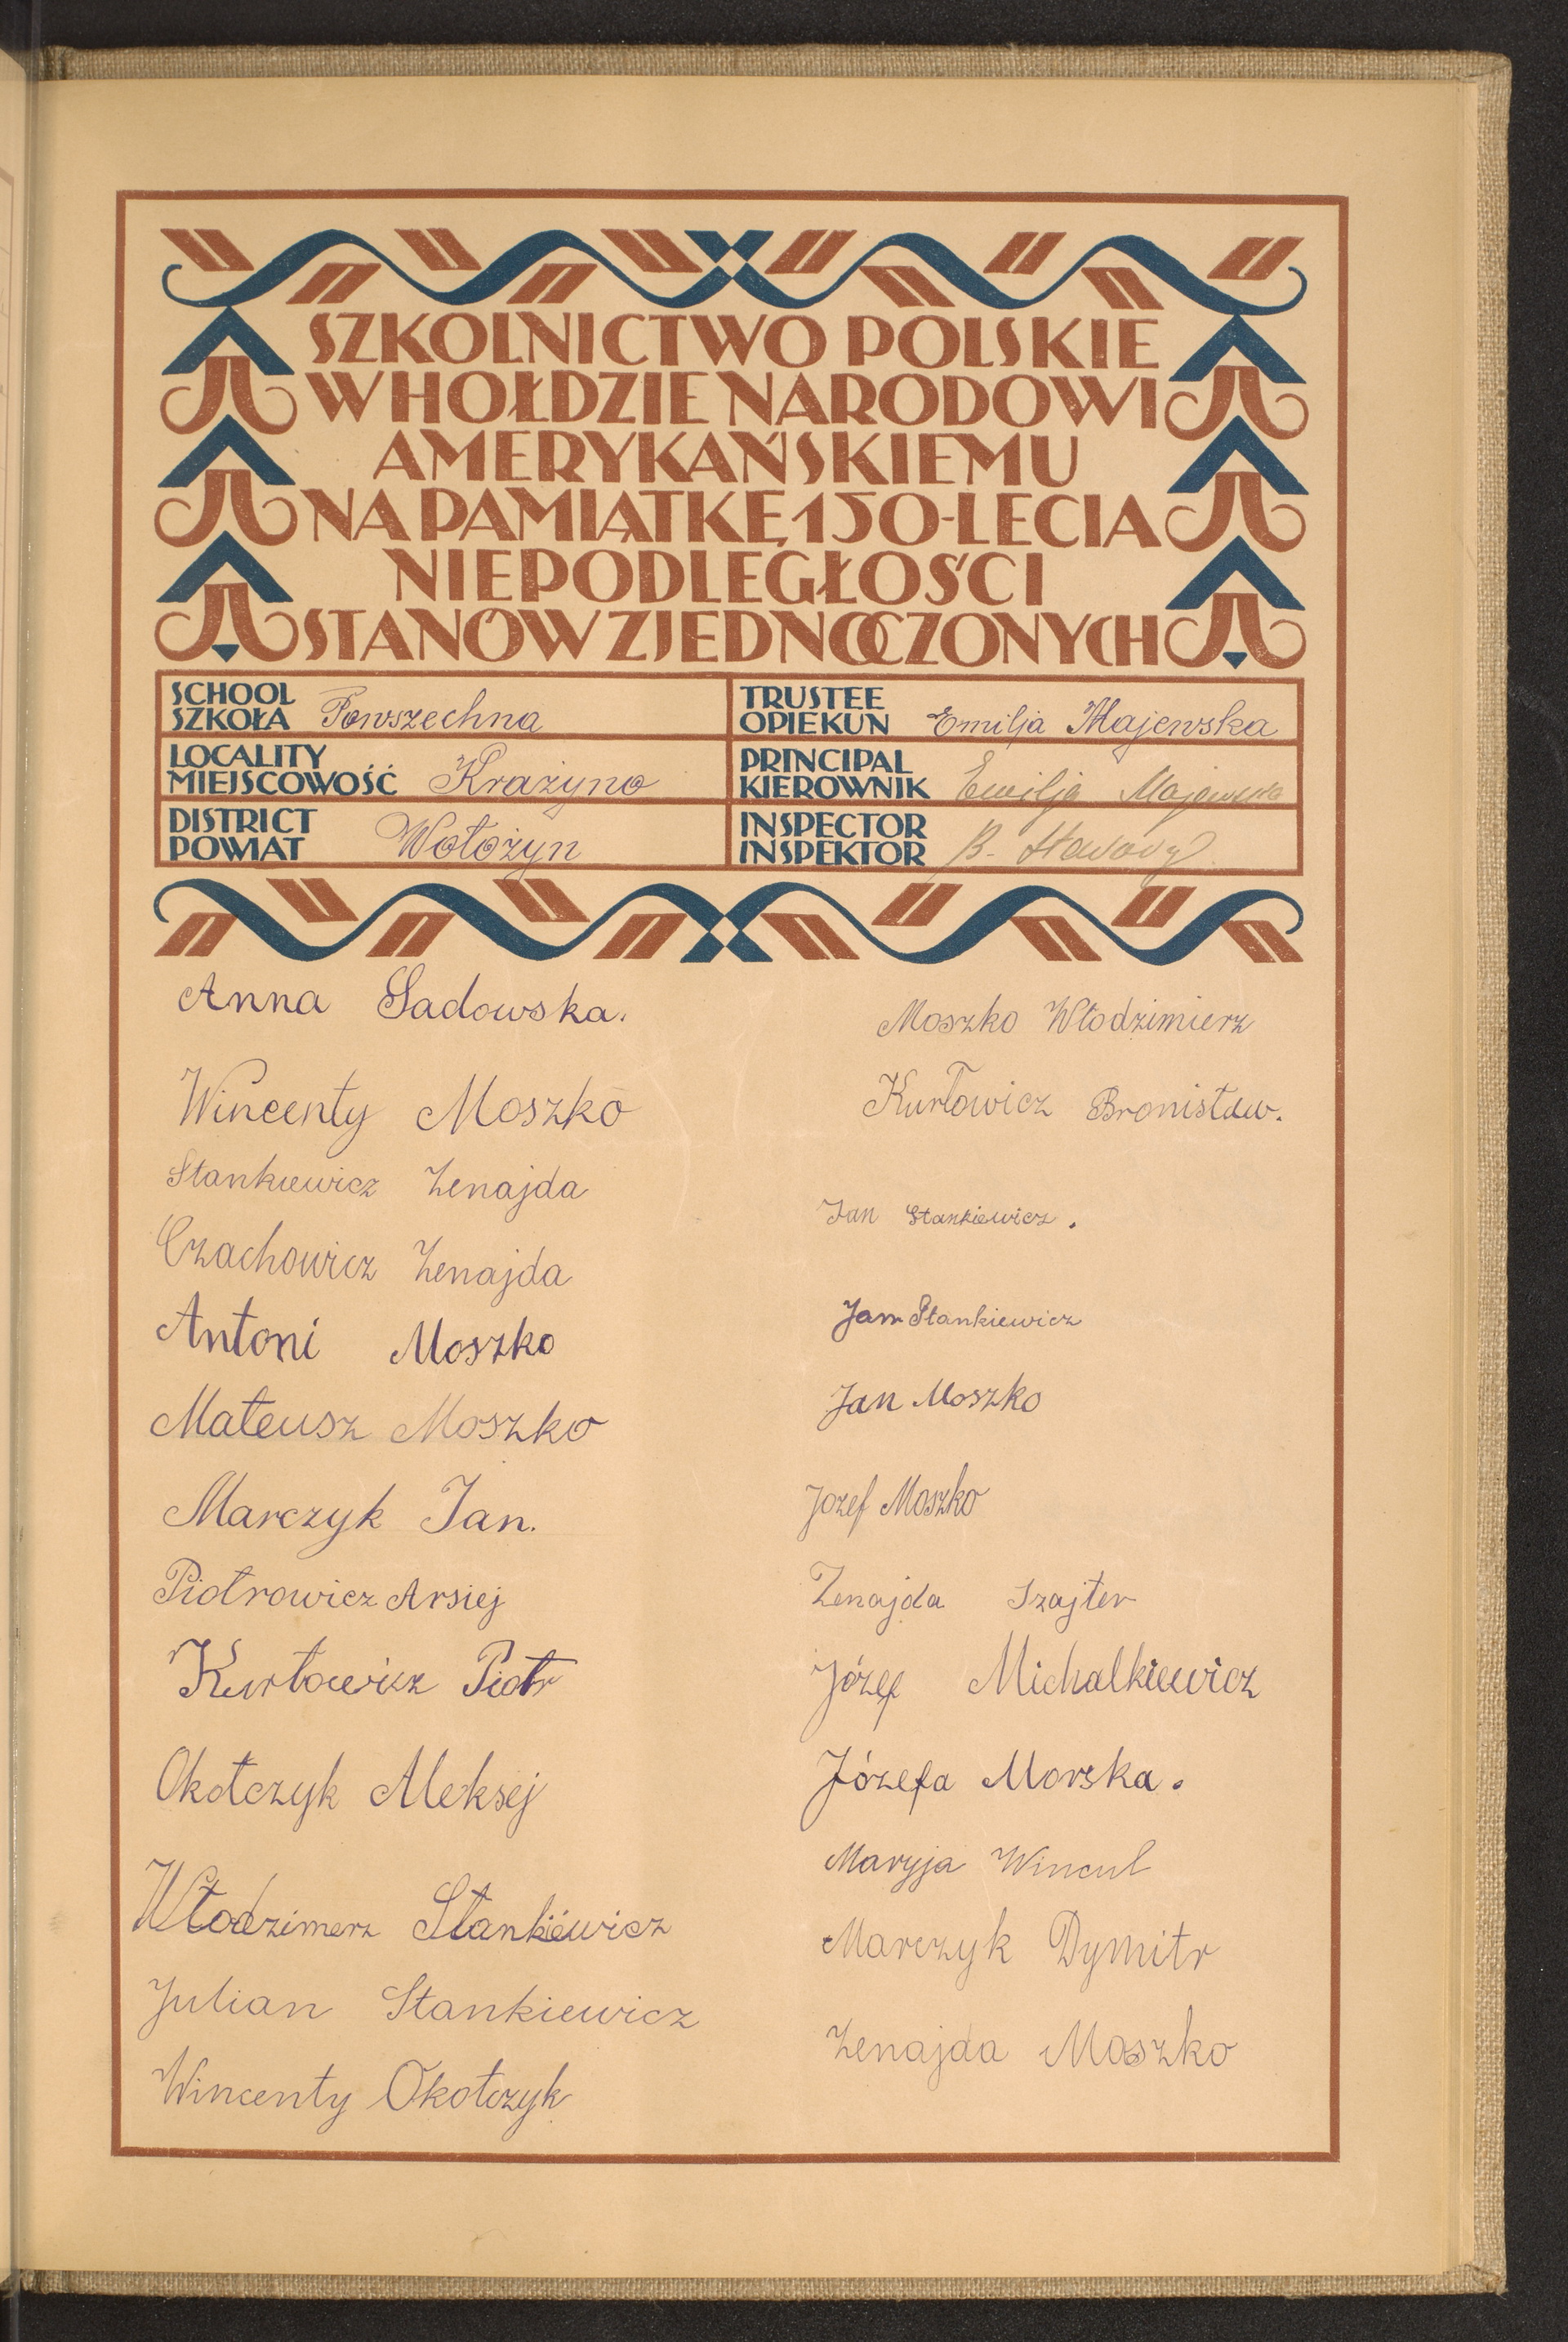 SZKOLNICTWO POLSKIE
W HOŁDZIE NARODOWI
AMERYKAŃSKIEMU
NA PAMIĄTKĘ 150-LECIA
NIEPODLEGŁOŚCI
STANÓW ZJEDNOCZONYCH
SCHOOL
SZKOŁA Powszechna
LOCALITY
MIEJSCOWOŚĆ Krażyno
DISTRICT
POWIAT Wołożyn
TRUSTEE
OPIEKUN Emilja Majewska
PRINCIPAL
KIEROWNIK Emilja Majewska
INSPECTOR
INSPEKTOR B.
Anna Sadowska.
Wincenty Moszko
Stankiewicz Zenajda
Czachowicz Zenajda
Antoni Moszko
Mateusz Moszko
Marczyk Jan.
Piotrowicz Arsiej
Kurłowicz Piotr
Okołczyk Aleksej
Włodzimerz Stankiewicz
Julian Stankiewicz
Wincenty Okołczyk
Moszko Włodzimierz
Kurłowicz Bronisław.
Jan Stankiewicz.
Jan Stankiewicz
Jan Moszko
Jozef Moszko
Zenajda Szajter
Józef Michalkiewicz
Józefa Morska.
Maryja Wincul
Marczyk Dymitr
Zenajda Moszko